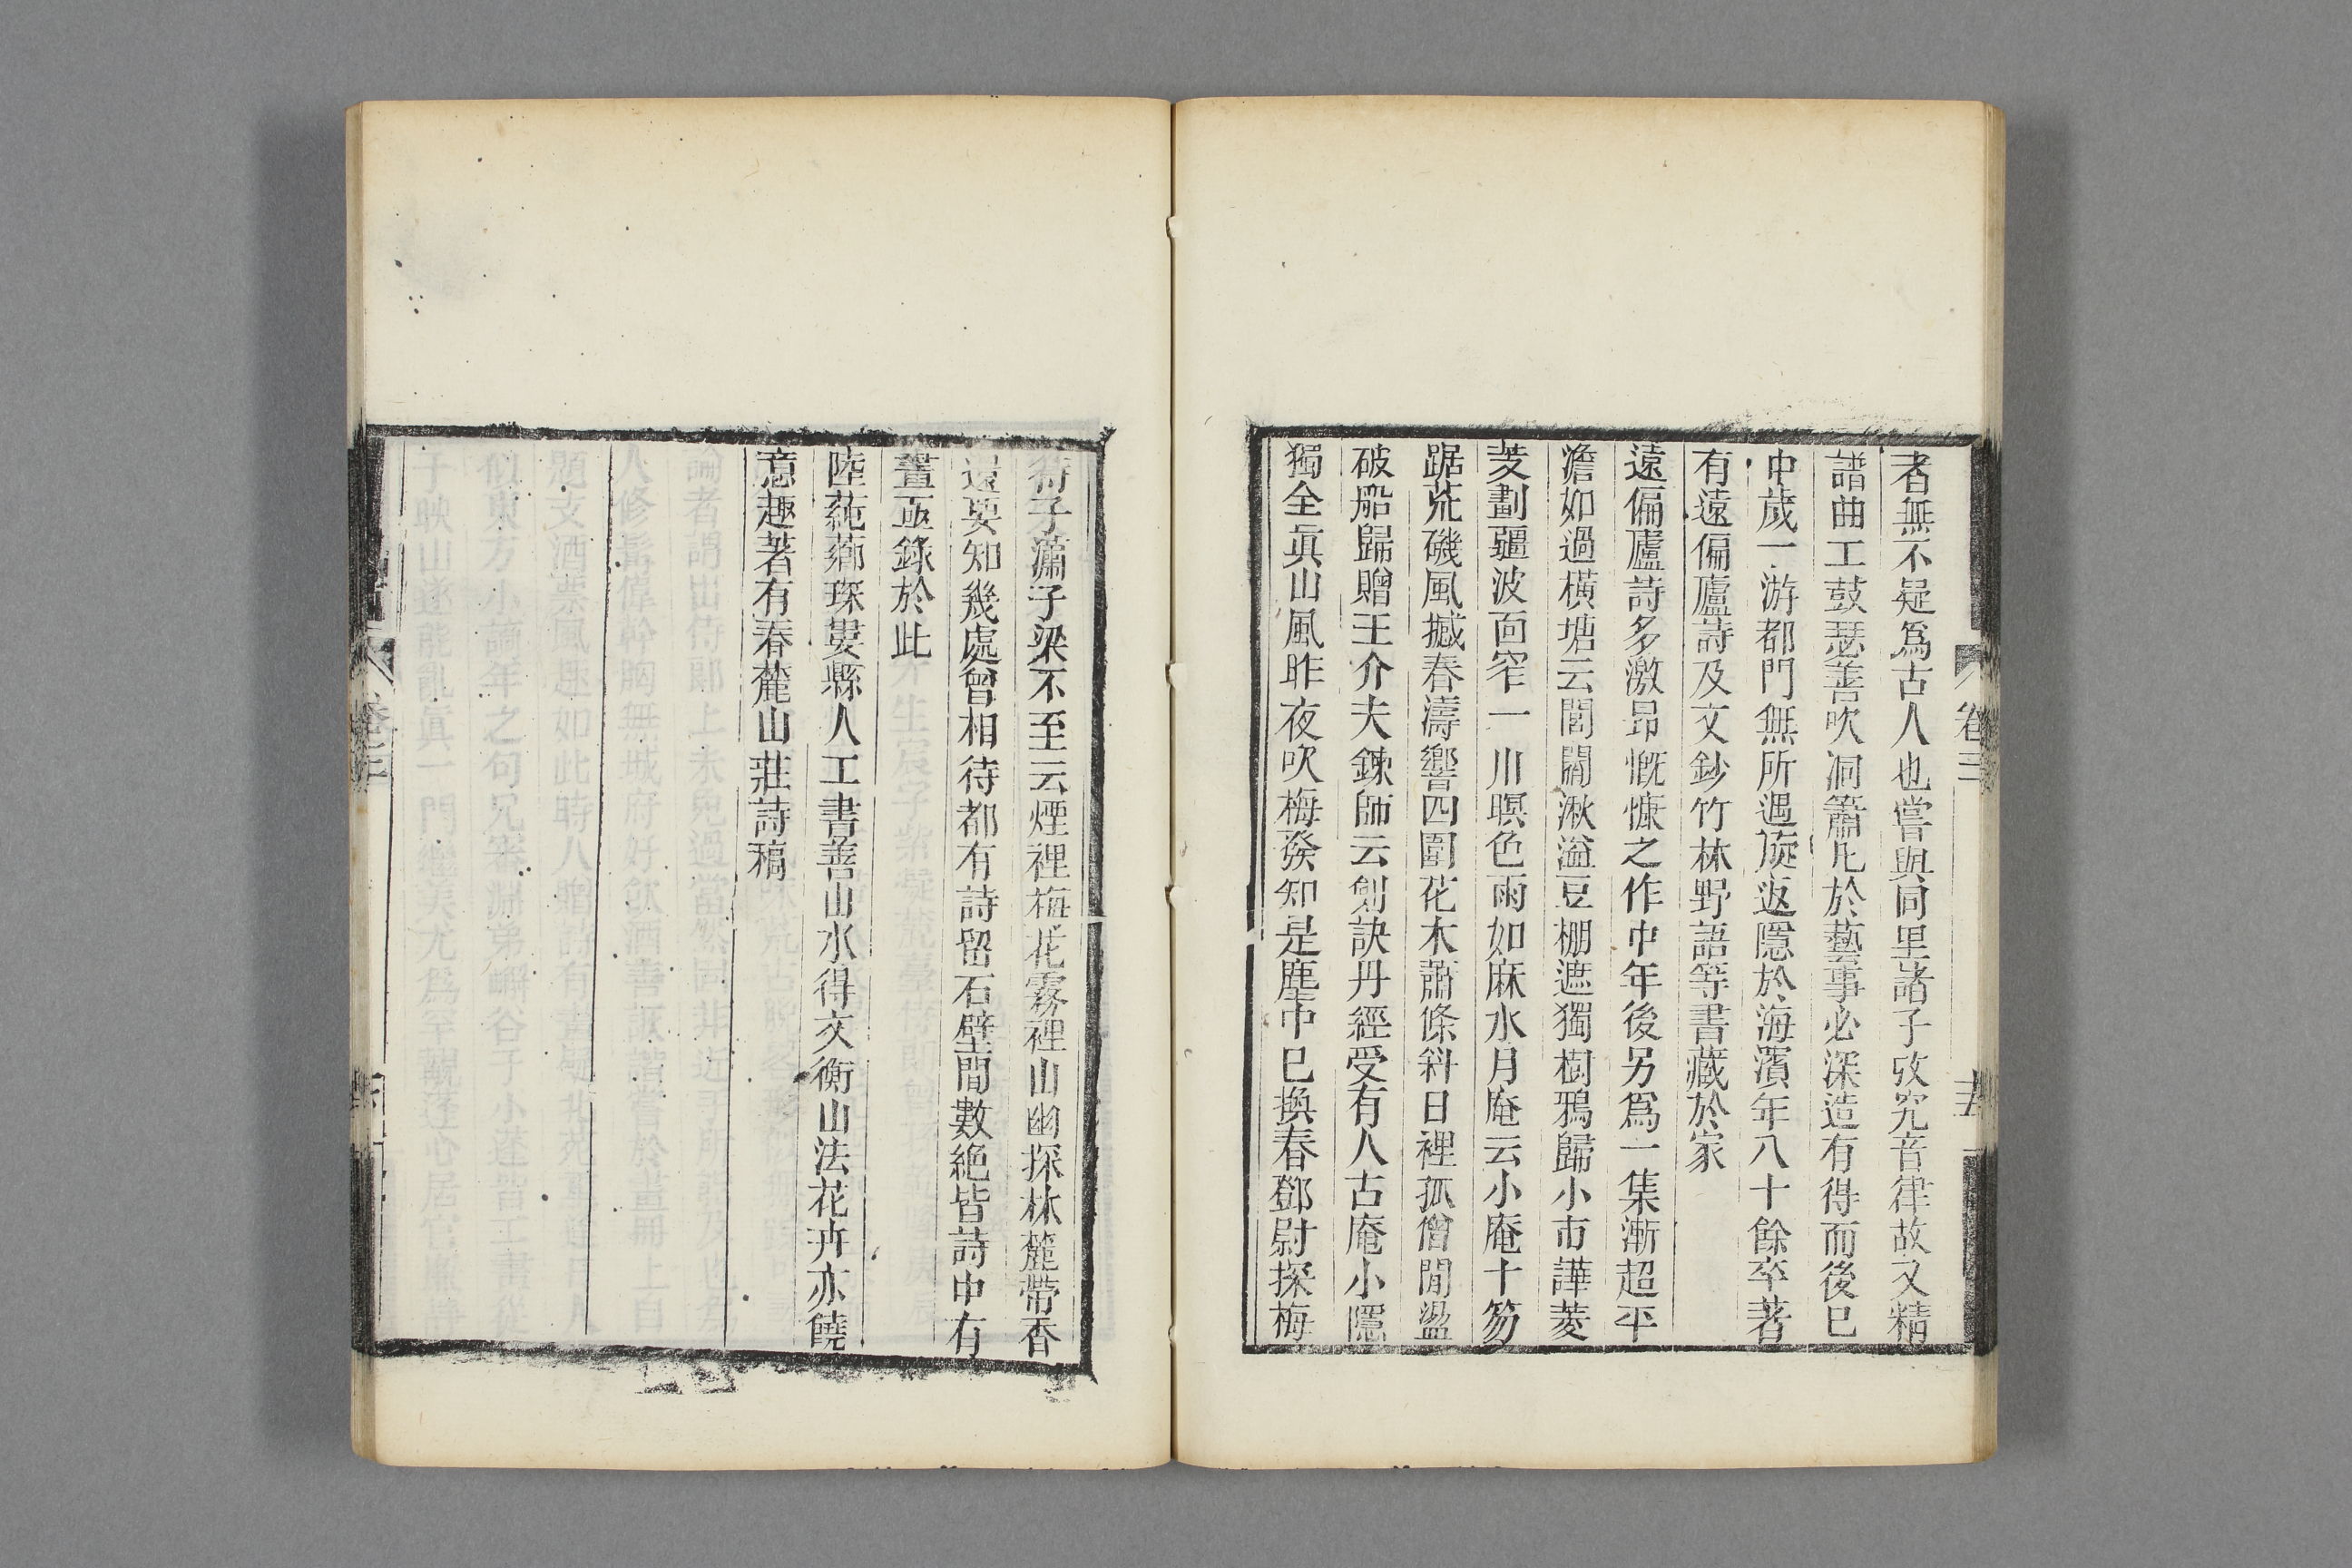 卷三
者無不疑爲古人也嘗與同里諸子攷究音律故又精
譜曲工鼓瑟善吹洞簫凡於藝事必深造有得而後已
中歲一游都門無所遇旋返隱於海濱年八十餘卒著
有遠偏廬詩及文鈔竹林野語等書藏於家
遠偏廬詩多激昂慨慷之作中年後另爲一集漸超平
澹如過橫塘云閣閣湫溢豆棚遮獨樹鴉歸小市譁菱
芰劃疆波面窄一川暝色雨如麻水月庵云小庵十笏
踞荒磯風撼春濤響四圍花木蕭條斜日裡孤僧閒盥
破船歸贈王介夫鍊師云劍訣丹經受有人古庵小隱
獨全眞山風昨夜吹梅發知是塵中已換春鄧尉探梅
待子瀟子梁不至云煙裡梅花霧裡山幽探林麓帶香
還要知幾處曾相待都有詩留石壁間數絶皆詩中有
畫亟錄於此
陸蒓薌琛婁縣人工書善山水得文衡山法花卉亦饒
意趣著有春麓山莊詩稿
卷三